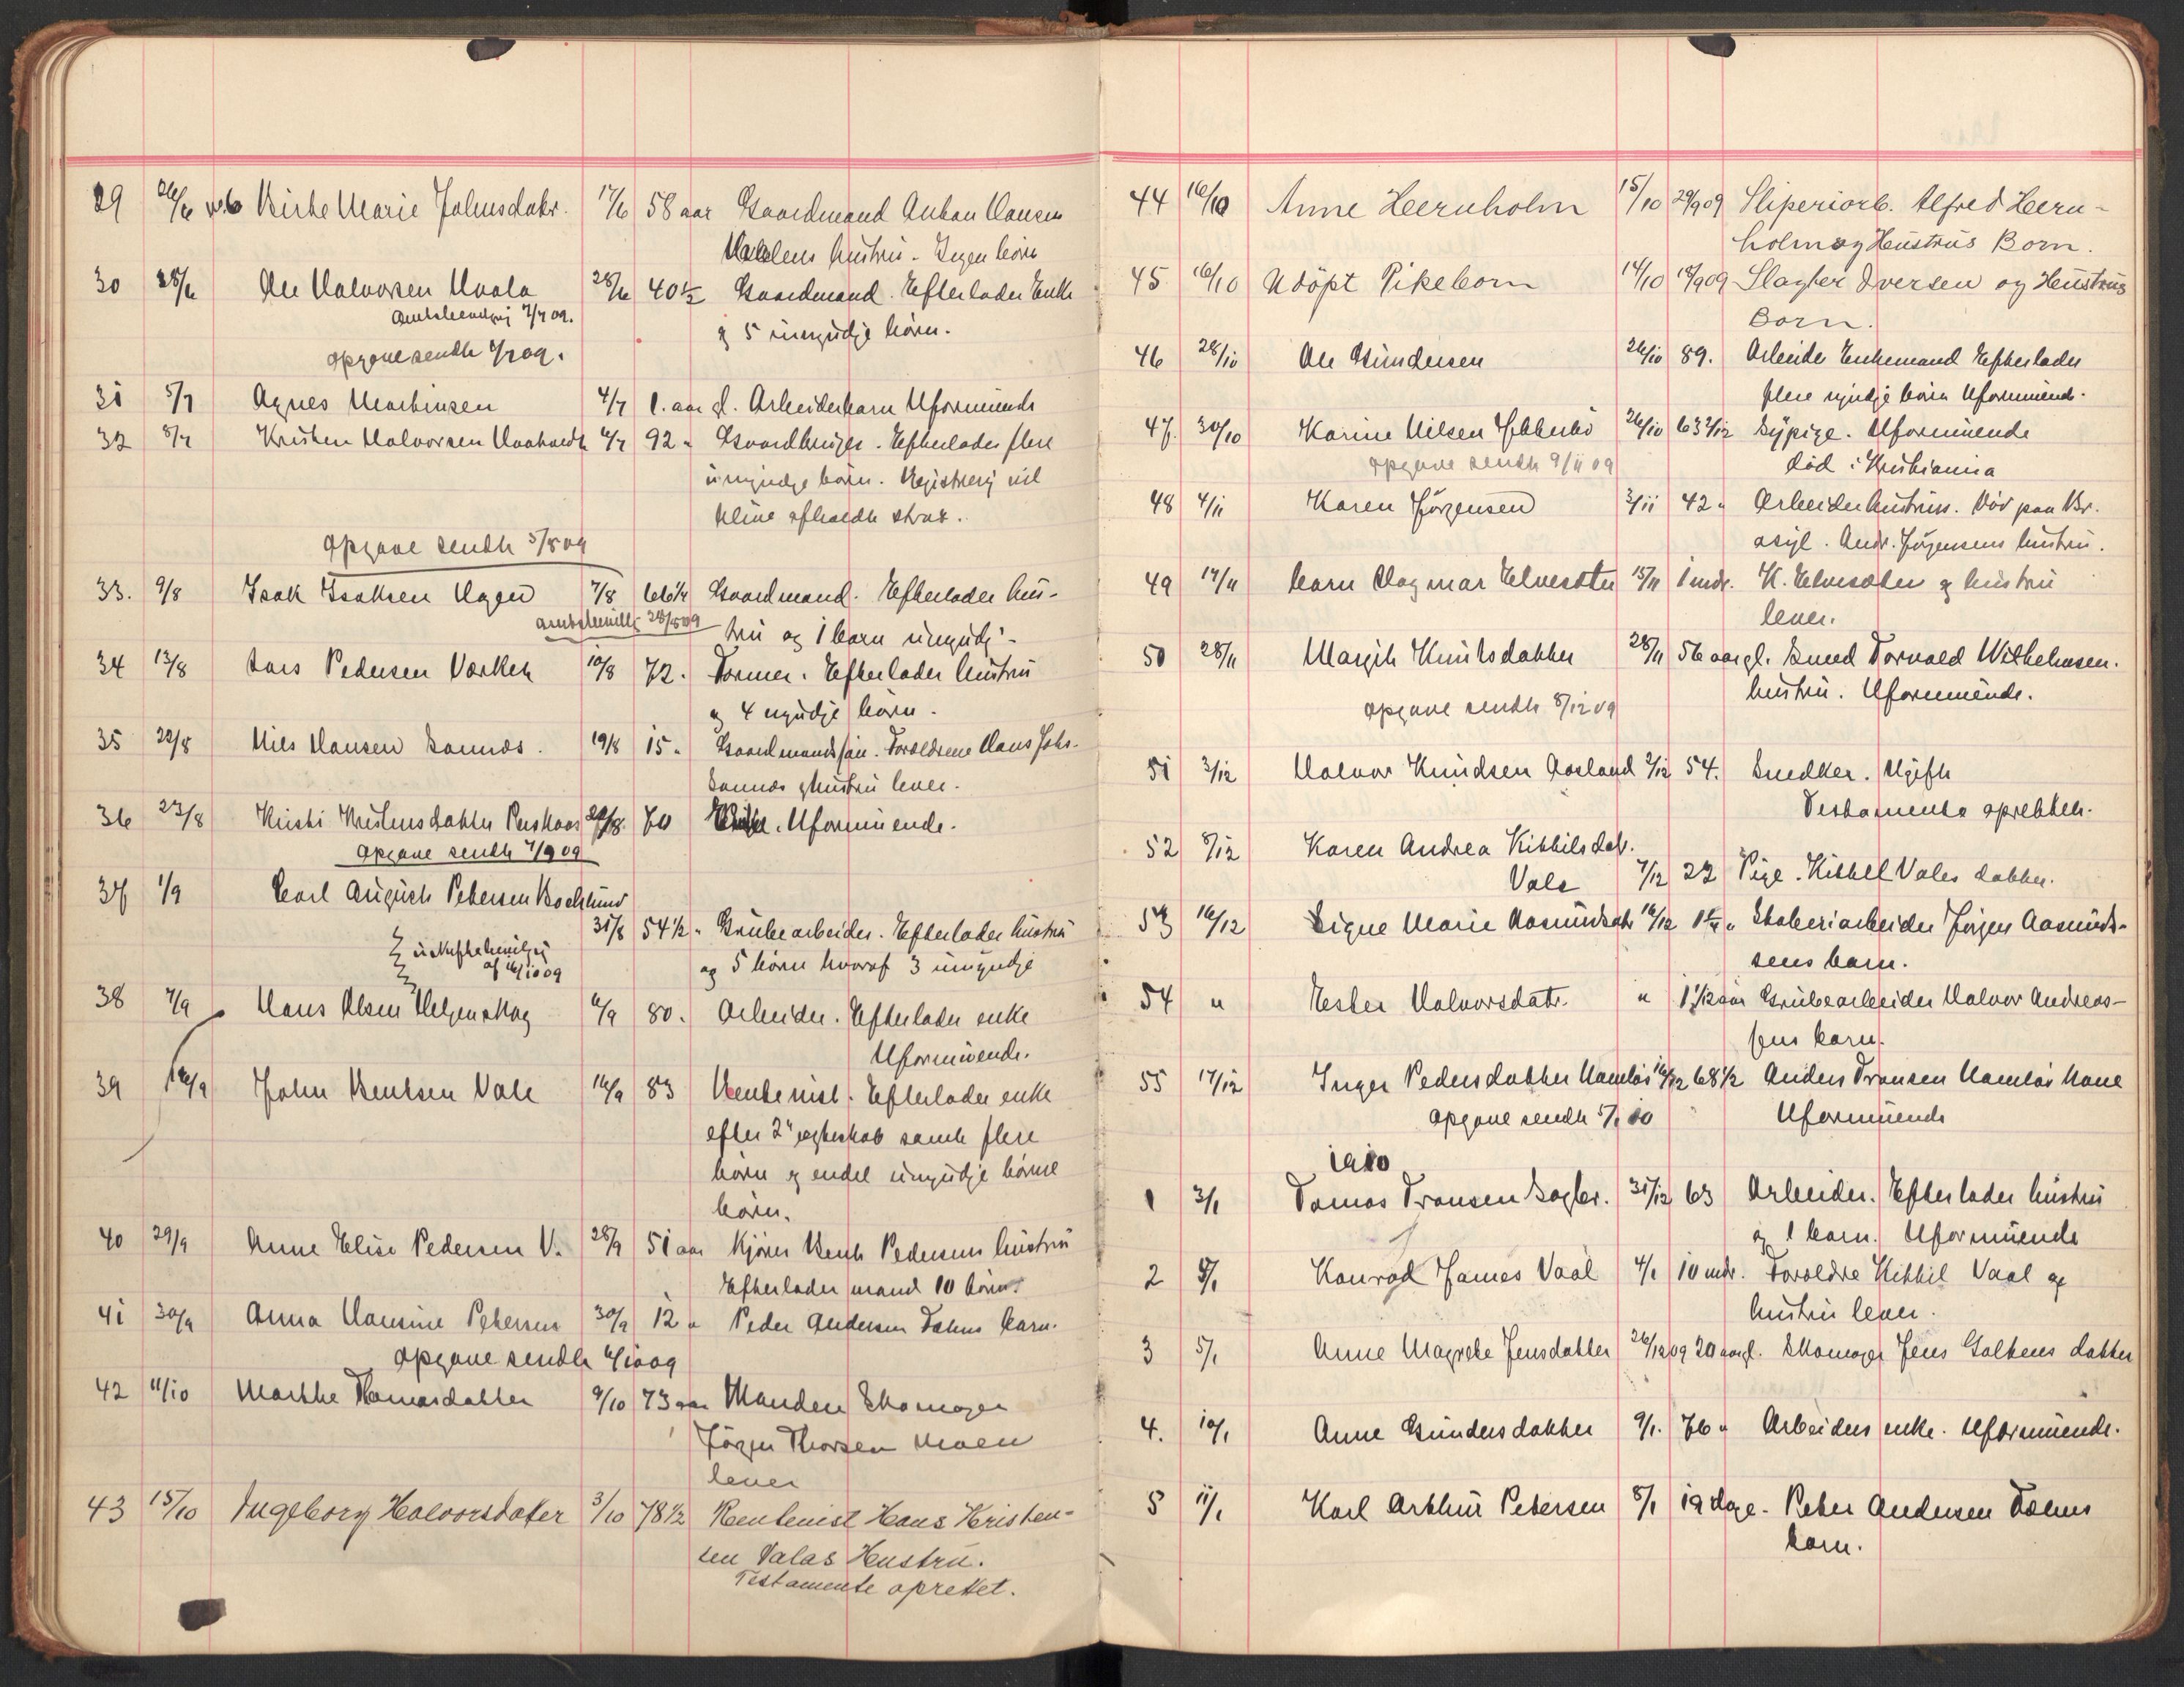 29 26/6 Birte Marie Johnsdatr. 17/6 58 aar Gaardmand Anton Hansen
hustru. Ingen børn
30 28/6 Ole Halvorsen Hvala 28/6 40½ Gaardmand. Efterlader Enke
7/7 09. og 5 umyndige børn.
opgave sendt 4/7 09.
31 5/7 Agnes Martinsen 4/7 1. aar gl. Arbeiderbarn Uformuende
32 8/7 Kristen Halvorsen 6/7 92 " Gaardbruger. Efterlader flere
umyndige børn. Registrering vil
blive afholdt strax.
opgave sendt 5/8 09
33. 9/8 Isak Isaksen Hagen 7/8 66¼ Gaardmand. Efterlader hus-
28/8 09 tru og 1 barn umyndig.
34 13/8 Lars Pedersen Værket 10/8 72. Former. Efterlader hustru
og 4 myndige børn.
35 22/8 Nils Hansen Sannæs. 19/8 15 " Gaardmandssøn. Forældrene Hans Johs.
Sannæs og hustru lever.
36 23/8 Kirsti Kristensdatter 70 Uformuende.
opgave sendt 7/9 09
37 1/9 Carl August Petersen
31/8 54½ " Grubearbeider. Efterlader hustru
og 5 børn hvoraf 3 umyndige
af 16/10 09
38 7/9 Hans Olsen Helgenskag 6/9 80. Arbeider. Efterlader enke
Uformuende.
39 16/9 John Bentsen Vale 16/9 83 Rentenist. Efterlader enke
efter 2" egteskab samt flere
børn og endel umyndige børne
børn.
40 29/9 Anne Elise Pedersen V. 28/9 51 aar Kjører Bent Pedersens hustru
Efterlader mand 10 børn.
41 30/9 Anna Hansine Petersen 30/9 12 " Peder Andersen Dahns barn.
opgave sendt 6/10 09
42 11/10 Marthe Thomasdatter 9/10 73 aar Manden Skomager
Jörgen Thorsen Moen
lever
43 15/10 Ingeborg Halvorsdatter 3/10 78½ Rentenist Hans Kristen-
sen Valas Hustru.
Testamente oprettet.
44 16/10 Anne Heernholm 15/10 29/9 09 Sliperiarb. Alfred Heern-
holm og Hustrus Born.
45 16/10 Udöpt Pikeborn 14/10 18/9 09 Slagter Iversen og Hustrus
Born.
46 28/10 Ole Gundersen 26/10 89. Arbeider Enkemand Efterlader
flere myndige børn Uformuende.
47. 30/10 Karine Nilsen 26/10 63 Sypige. Uformuende
opgave sendt 9/11 09 død i Kristiania
48 4/11 Karen Jörgensen 3/11 42 " Arbeiderhustru. Död paa Br.
asyl. Andr. Jörgensens hustru.
49 17/11 Karn Dagmar Elvesæter 15/11 1 mdr. K. Elvesæter og hustru
lever.
50 28/11 Margit Knutsdatter 28/11 56 aar gl. Smed Torvald Wilhelmsen.
hustru. Uformuende.
opgave sendt 8/12 09
51 3/12 Halvor Knudsen Aasland 2/12 54. Snedker. Ugift
Testamente oprettet.
52 8/12 Karen Andrea Kittilsdatr.
Vale 7/12 22 Pige. Kittel Vales datter.
53 16/12 Signe Marie Aasmundsdatr 16/12 Støberiarbeider Jörgen Aasmund-
sens barn.
54 " Ester Halvorsdatr. " 1 1/12 aar Grubearbeider Halvor Andreas-
sens barn.
55 17/12 Inger Pedersdatter 16/12 68½ Anders Transen kone
opgave sendt 5/1 10 Uformuende
1910
1 3/1 Tomas Transen 31/12 63 Arbeider. Efterlader hustru
og 1 barn. Uformuende
2 5/1 Konrad James Vaal 4/1 10 mdr. Forældre Kittil Vaal og
hustru lever.
3 5/1 Anne Magrete Jensdatter 26/12 09 20 aar gl. Skomager Jens Galtens datter
4. 10/1 Anne Gundersdatter 9/1. 76 " Arbeiders enke. Uformuende.
5 11/1 Karl Arthur Petersen 8/1 19 dage. Peter Andersen Dahns
barn.